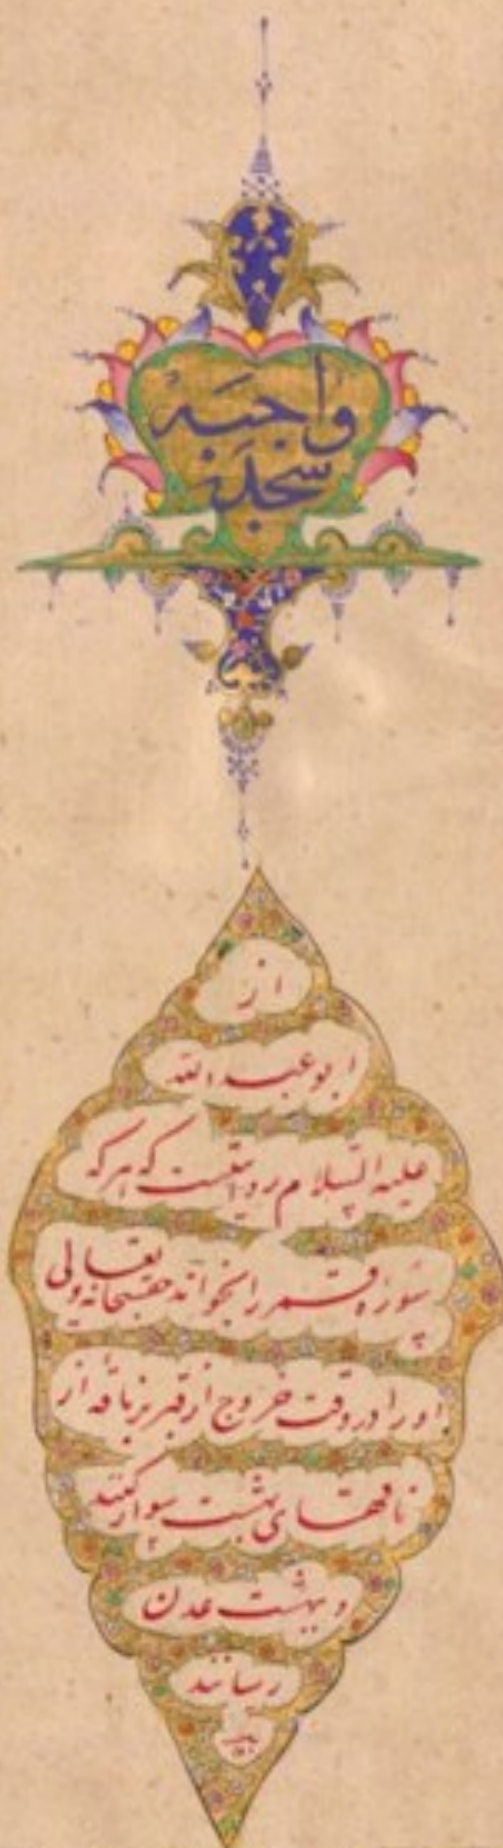 واجبه
سجده
از
ابو عبدالله
علیه السلام روایتست که هر که
سوره قمر را بخواند حقسبحانه وتعالی
او را در وقت خروج از قبر بر ناقهٔ از
ناقهای بهشت سوار کنند
و ببهشت عدن
رسانند